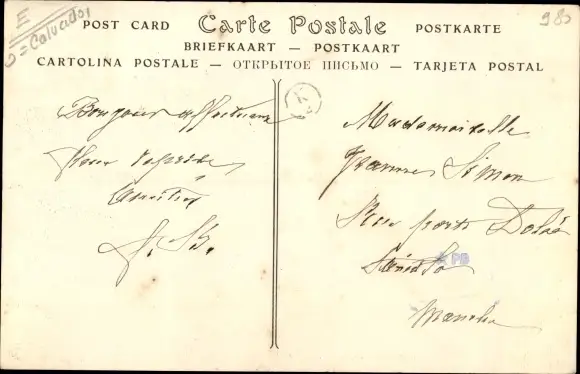 E
= Calvados
980
POST CARD Carte Postale POSTKARTE
BRIEFKAART — POSTKAART
CARTOLINA POSTALE — ОТКРЫТОЕ ПИСЬМО — TARJETA POSTAL
Bonjour affectueux
J. B.
Mademoiselle
Jeanne Simon
Rue porte Dolée
Saint Lo
Manche
PB